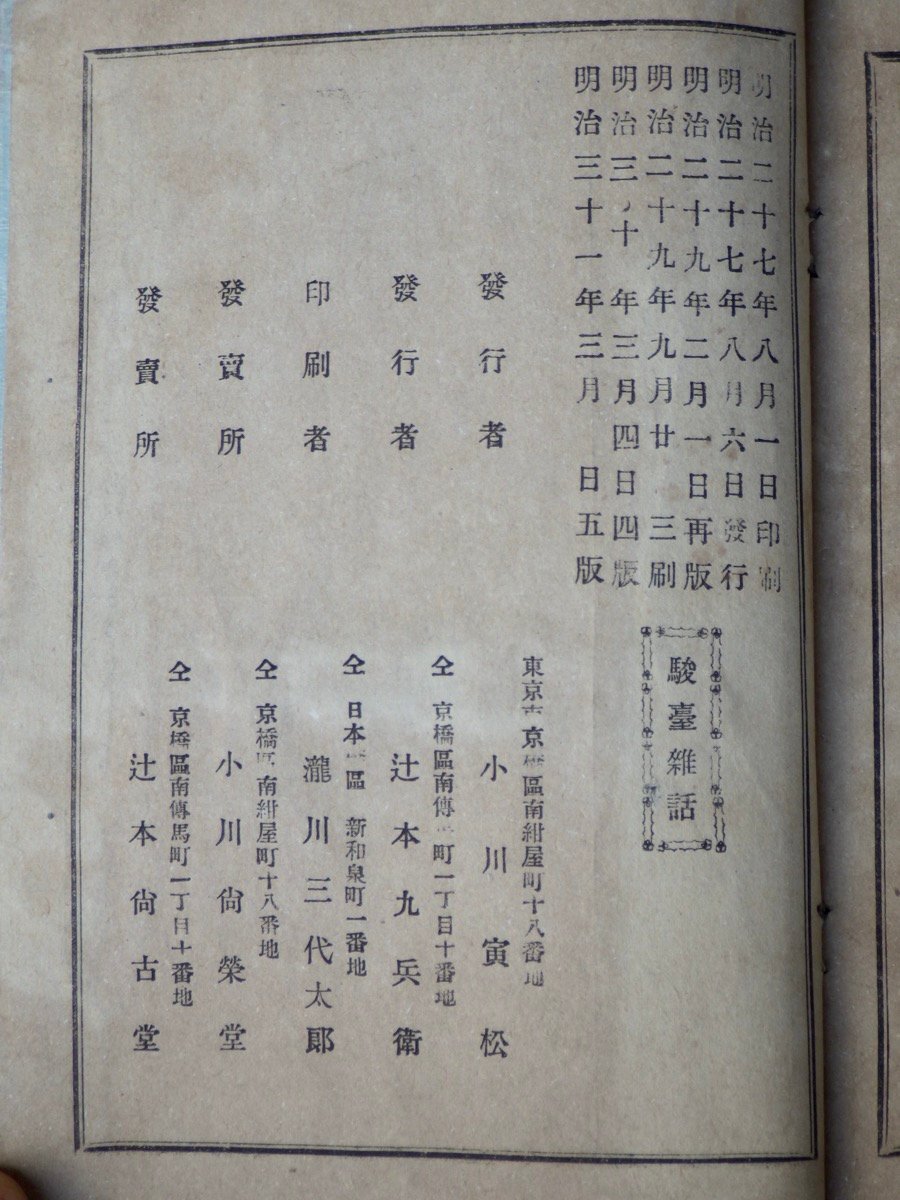 明治二十七年八月一日印刷
明治二十七年八月六日發行
明治二十九年二月一日再版
明治二十九年九月廿 三刷
明治三十年三月四日四版
明治三十一年三月 日五版
駿臺雜話
東京市京橋區南紺屋町十八番地
發行者 小川寅松
仝 京橋區南傳 町一丁目十番地
發行者 辻本九兵衛
仝 日本 區 新和泉町一番地
印刷者 瀧川三代太郎
仝 京橋區南紺屋町十八番地
發賣所 小川尙榮堂
仝 京橋區南傳馬町一丁目十番地
發賣所 辻本尙古堂